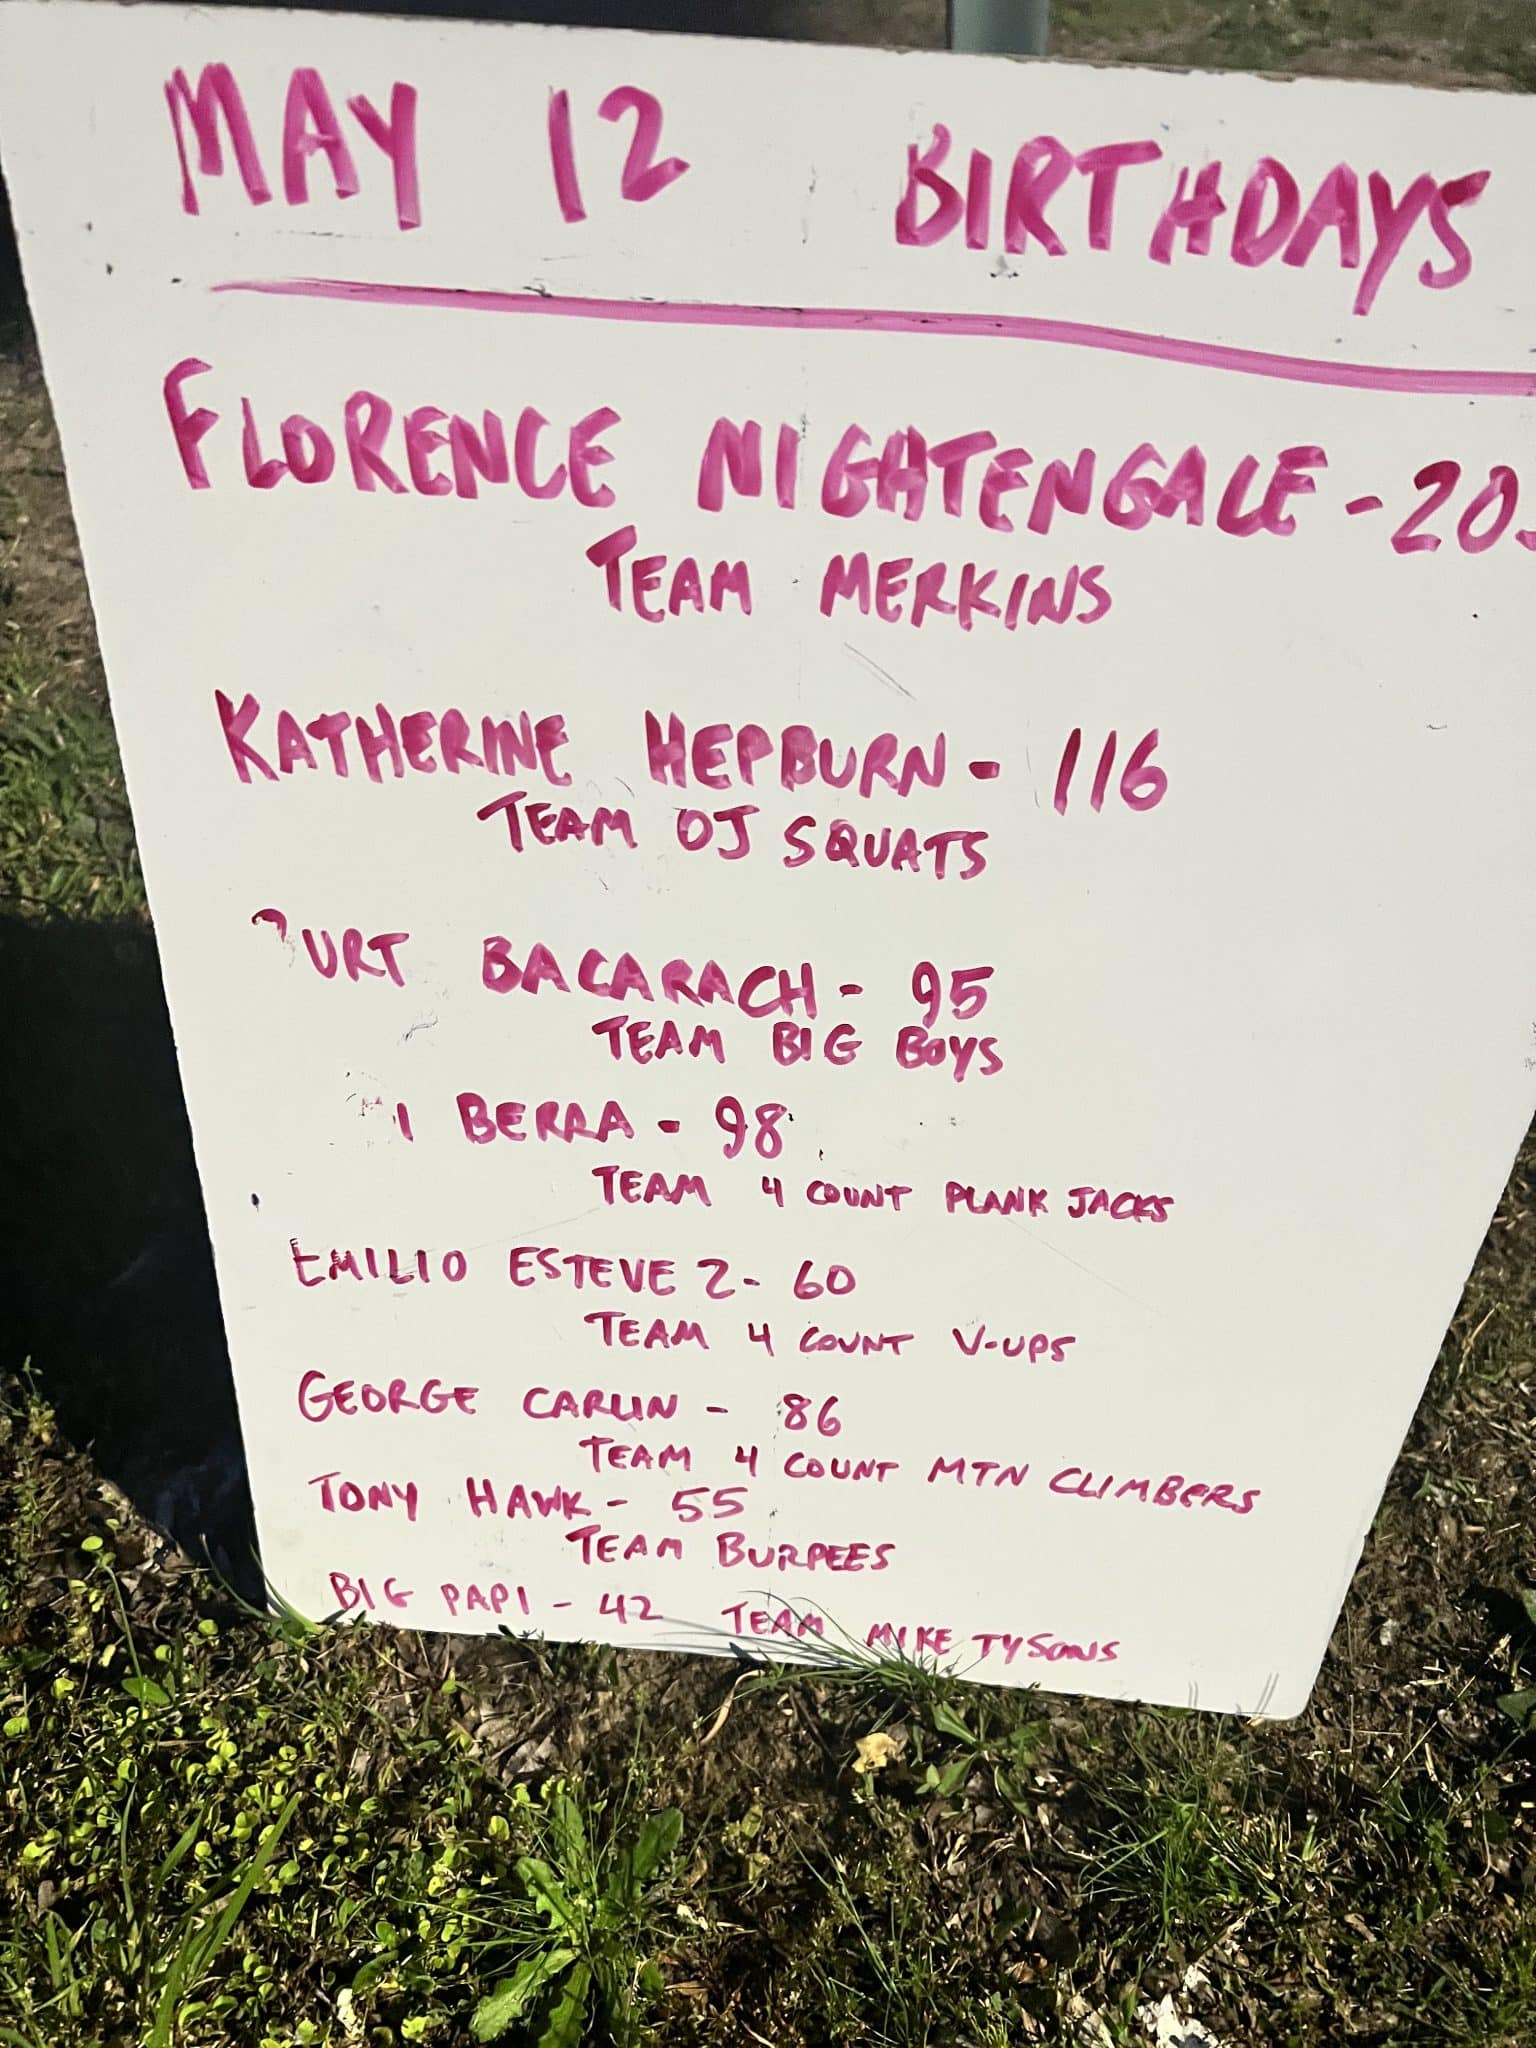 MAY 12 BIRTHDAYS
FLORENCE NIGHTENGALE - 20
TEAM MERKINS
KATHERINE HEPBURN - 116
TEAM OJ SQUATS
URT BACARACH - 95
TEAM BIG BOYS
I BERRA - 98
TEAM 4 COUNT PLANK JACKS
EMILIO ESTEVEZ - 60
TEAM 4 COUNT V-UPS
GEORGE CARLIN - 86
TEAM 4 COUNT MTN CLIMBERS
TONY HAWK - 55
TEAM BURPEES
BIG PAPI - 42 TEAM MIKE TYSONS